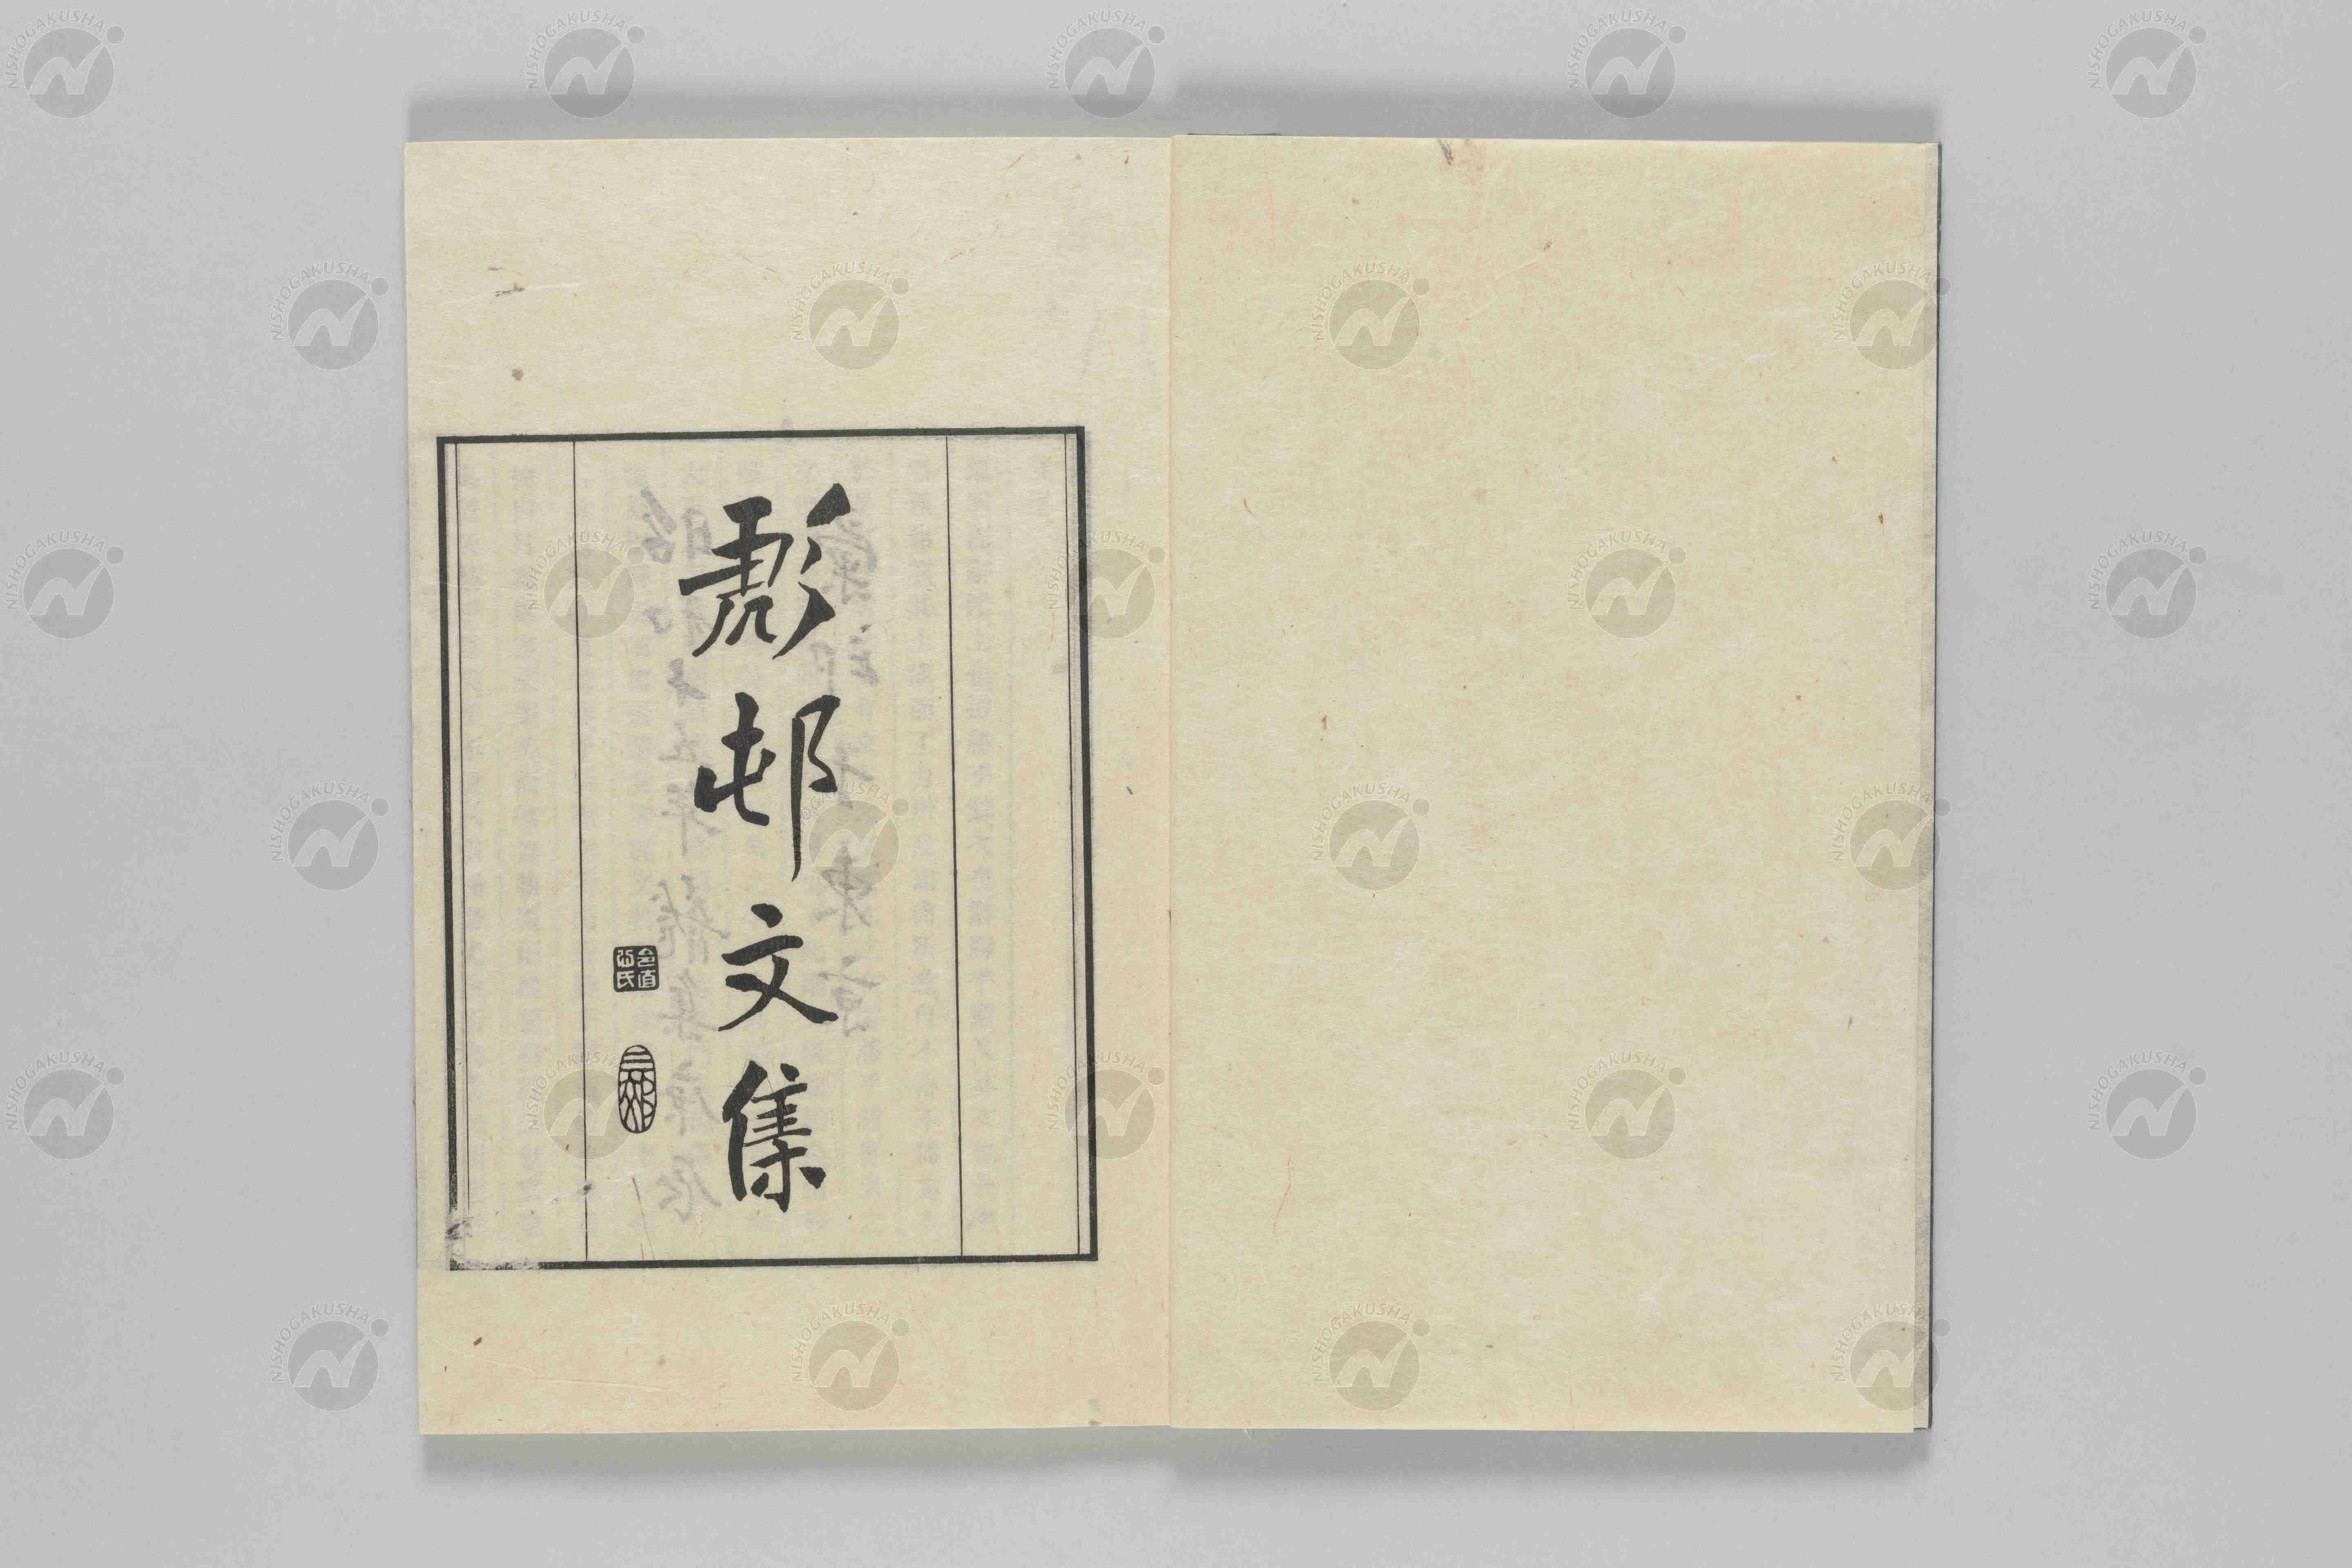 彪邨文集
NISHOGAKUSHA